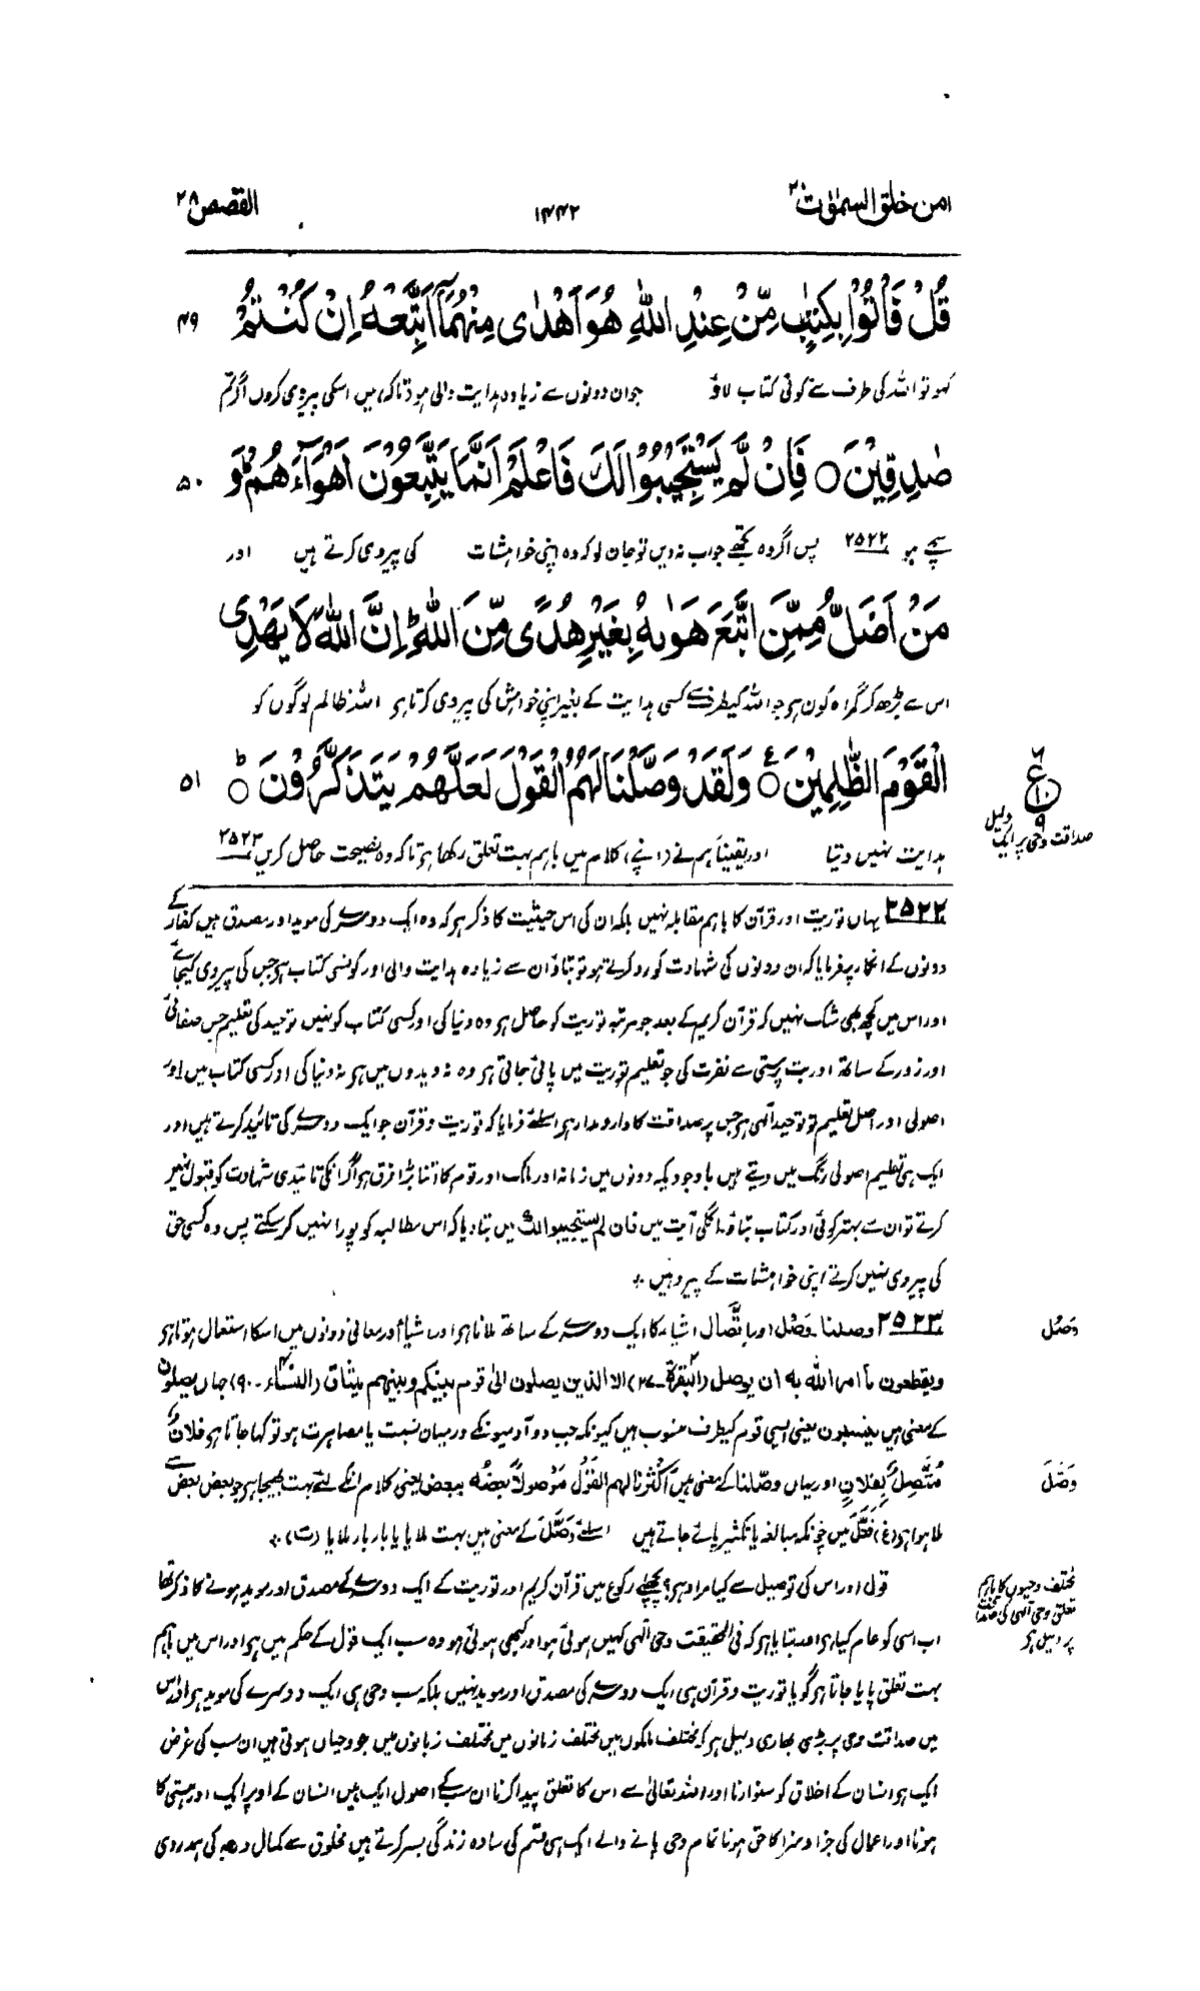 امن خلق السمٰوٰت ۲۰
۱۴۴۲
القصص ۲۸
قُلْ فَأْتُوْا بِكِتٰبٍ مِّنْ عِنْدِ اللّٰهِ هُوَ اَهْدٰى مِنْهُمَآ اَتَّبِعْهُ اِنْ كُنْتُمْ
۴۹
کہو تو اللہ کی طرف سے کوئی کتاب لاؤ جو ان دونوں سے زیادہ ہدایت والی ہو تاکہ میں اسکی پیروی کروں اگر تم
صٰدِقِيْنَ ○ فَاِنْ لَّمْ يَسْتَجِيْبُوْا لَكَ فَاعْلَمْ اَنَّمَا يَتَّبِعُوْنَ اَهْوَآءَهُمْ ؕ وَ
۵۰
سچے ہو ۲۵۲۲ پس اگر وہ تجھے جواب نہ دیں تو جان لو کہ وہ اپنی خواہشات کی پیروی کرتے ہیں اور
مَنْ اَضَلُّ مِمَّنِ اتَّبَعَ هَوٰىهُ بِغَيْرِ هُدًى مِّنَ اللّٰهِ ؕ اِنَّ اللّٰهَ لَا يَهْدِى
اس سے بڑھ کر گمراہ کون ہو جو اللہ کیطرف سے کسی ہدایت کے بغیر اپنی خواہش کی پیروی کرتا ہو اللہ ظالم لوگوں کو
الْقَوْمَ الظّٰلِمِيْنَ ○ وَلَقَدْ وَصَّلْنَا لَهُمُ الْقَوْلَ لَعَلَّهُمْ يَتَذَكَّرُوْنَ ○ؕ
۵۱
ع
۱۰
۹
دلیل
صداقت وحی پر ایک
ہدایت نہیں دیتا اور یقیناً ہم نے (اپنے) کلام میں باہم بہت تعلق رکھا ہو تاکہ وہ نصیحت حاصل کریں ۲۵۲۳
۲۵۲۲ یہاں توریت اور قرآن کا باہم مقابلہ نہیں بلکہ ان کی اس حیثیت کا ذکر ہو کہ وہ ایک دوسرے کی موید اور مصدق ہیں کفار کے
دونوں کے انکار پر فرمایا کہ ان دونوں کی شہادت کو رد کرتے ہو تو بتاؤ ان سے زیادہ ہدایت والی اور کونسی کتاب ہو جس کی پیروی کیجائے
اور اس میں کچھ بھی شک نہیں کہ قرآن کریم کے بعد جو مرتبہ توریت کو حاصل ہو وہ دنیا کی اور کسی کتاب کو نہیں توحید کی تعلیم جس صفائی
اور زور کے ساتھ اور بت پرستی سے نفرت کی جو تعلیم توریت میں پائی جاتی ہو وہ نہ ویدوں میں ہو نہ دنیا کی اور کسی کتاب میں اور
اصولی اور اصل تعلیم تو توحید الٰہی ہو جس پر صداقت کا دارومدار ہو اسلئے فرمایا کہ توریت و قرآن جو ایک دوسرے کی تائید کرتے ہیں اور
ایک ہی تعلیم اصولی رنگ میں دیتے ہیں باوجودیکہ دونوں میں زمانہ اور ملک اور قوم کا اتنا بڑا فرق ہو اگر انکی تائیدی شہادت کو قبول نہیں
کرتے تو ان سے بہتر کوئی اور کتاب بتاؤ۔ اگلی آیت میں فان لم یستجیبوا لك میں بتا دیا کہ اس مطالبہ کو پورا نہیں کر سکتے پس وہ کسی حق
کی پیروی نہیں کرتے اپنی خواہشات کے پیرو ہیں ۔
۲۵۲۳ وصلنا۔ وَصْل اور اِتِّصَال اشیاء کا ایک دوسرے کے ساتھ ملانا ہو اور اشیاء اور معانی دونوں میں اسکا استعمال ہوتا ہو
وَصَل
ویقطعون ما امر اللہ به ان یوصل (البقرۃ۔۲۷) الا الذین یصلون الی قوم بینکم وبینهم میثاق (النساء۔۹۰) جہاں یصلون
کے معنی ہیں ینسبون یعنی ایسی قوم کیطرف منسوب ہیں کیونکہ جب دو آدمیوں کے درمیان نسبت یا مصاہرت ہو تو کہا جاتا ہو فلان
مُتَّصِلٌ بفلانٍ اور یہاں وصّلنا کے معنی ہیں اَکْثَرنا لهم القول مَوْصولاً بعضُه ببعض یعنی کلام انکے لئے بہت بھیجا ہو جو بعض بعض سے
وَصَّلَ
ملا ہوا ہو (غ) فَعَّلَ میں چونکہ مبالغہ یا تکثیر پائے جاتے ہیں اسلئے وَصَّلَ کے معنی ہیں بہت ملایا یا بار بار ملایا (ت) ۔
قول اور اس کی توصیل سے کیا مراد ہو؟ پچھلے رکوع میں قرآن کریم اور توریت کے ایک دوسرے کے مصدق اور موید ہونے کا ذکر تھا
مختلف وحیوں کا باہم
تعلق وحی الٰہی کی صداقت
پر دلیل ہو
اب اسی کو عام کیا ہو اور بتایا ہو کہ فی الحقیقت وحی الٰہی کہیں ہوئی ہو اور کبھی ہوئی ہو وہ سب ایک قول کے حکم میں ہو اور اس میں باہم
بہت تعلق پایا جاتا ہو گویا توریت و قرآن ہی ایک دوسرے کی مصدق اور موید نہیں بلکہ سب وحی ہی ایک دوسرے کی موید ہو اور اس
میں صداقت وحی پر بڑی بھاری دلیل ہو کہ مختلف ملکوں میں مختلف زمانوں میں مختلف زبانوں میں جو وحیاں ہوتی ہیں ان سب کی غرض
ایک ہو انسان کے اخلاق کو سنوارنا اور اللہ تعالیٰ سے اس کا تعلق پیدا کرنا ان سب کے اصول ایک ہیں انسان کے اوپر ایک اور ہستی کا
ہونا اور اعمال کی جزا و سزا کا حق ہونا تمام وحی پانے والے ایک ہی قسم کی سادہ زندگی بسر کرتے ہیں مخلوق سے کمال درجہ کی ہمدردی